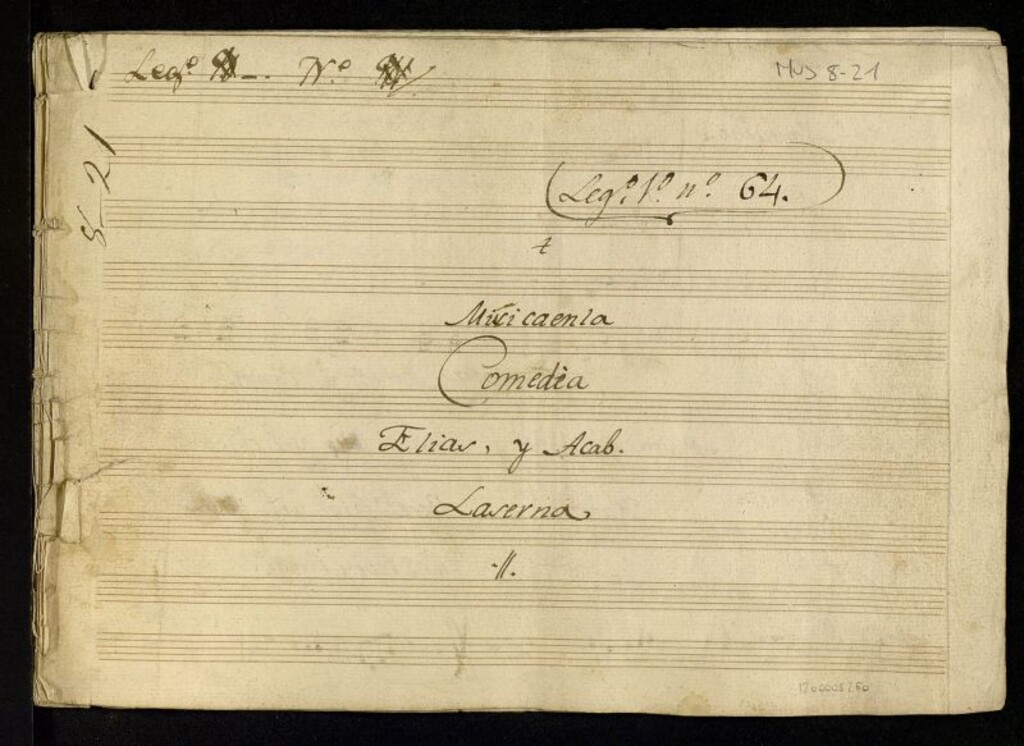 Legº. Nº.
MUS 8-21
8-21
Legº. 1º. nº. 64.
Musicaenla
Comedia
Elias, y Acab.
Laserna